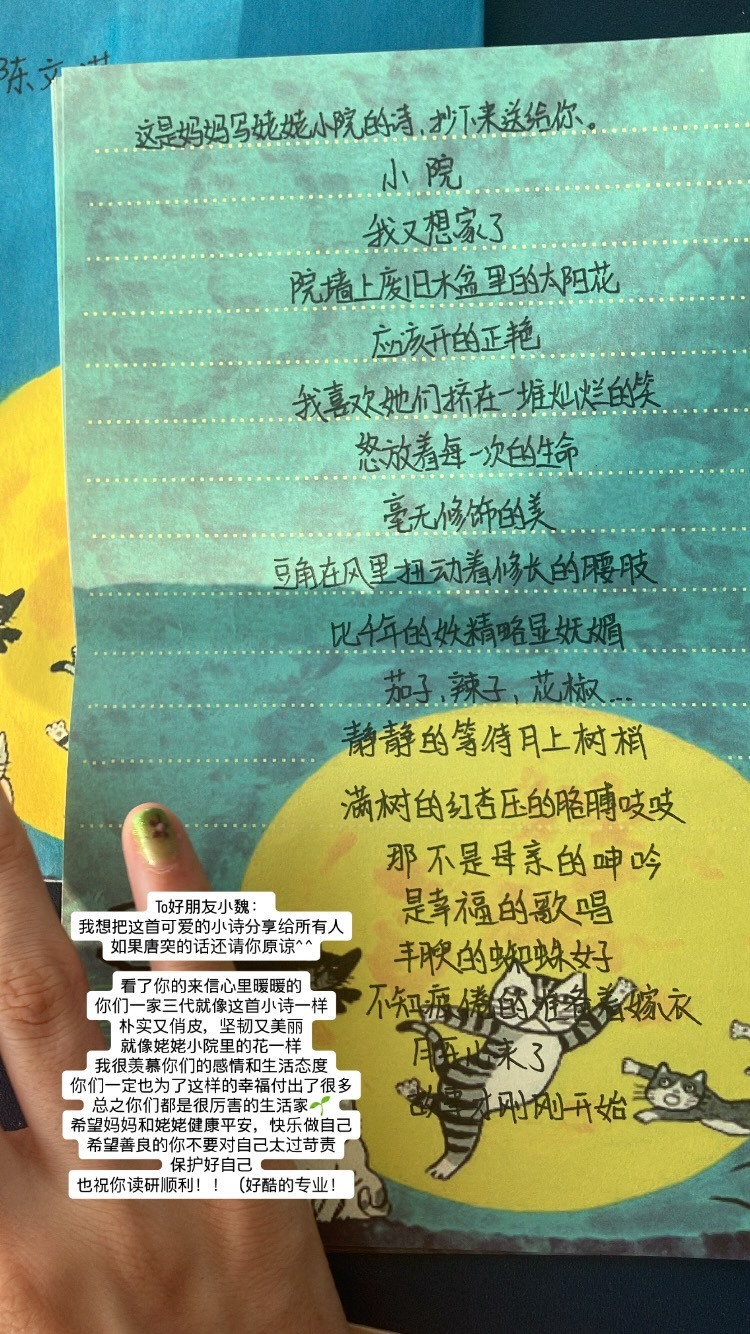 陈文淇
这是妈妈写姥姥小院的诗，抄下来送给你。
小院
我又想家了
院墙上废旧木盆里的太阳花
应该开的正艳
我喜欢她们挤在一堆灿烂的笑
怒放着每一次的生命
毫无修饰的美
豆角在风里扭动着修长的腰肢
比千年的妖精略显妩媚
茄子,辣子,花椒...
静静的等待月上树梢
满树的红杏压的胳膊吱吱
那不是母亲的呻吟
是幸福的歌唱
丰腴的蜘蛛女子
不知疲倦的准备着嫁衣
月亮出来了
故事才刚刚开始
To好朋友小魏：
我想把这首可爱的小诗分享给所有人
如果唐突的话还请你原谅^^
看了你的来信心里暖暖的
你们一家三代就像这首小诗一样
朴实又俏皮，坚韧又美丽
就像姥姥小院里的花一样
我很羡慕你们的感情和生活态度
你们一定也为了这样的幸福付出了很多
总之你们都是很厉害的生活家🌱
希望妈妈和姥姥健康平安，快乐做自己
希望善良的你不要对自己太过苛责
保护好自己
也祝你读研顺利！！（好酷的专业！